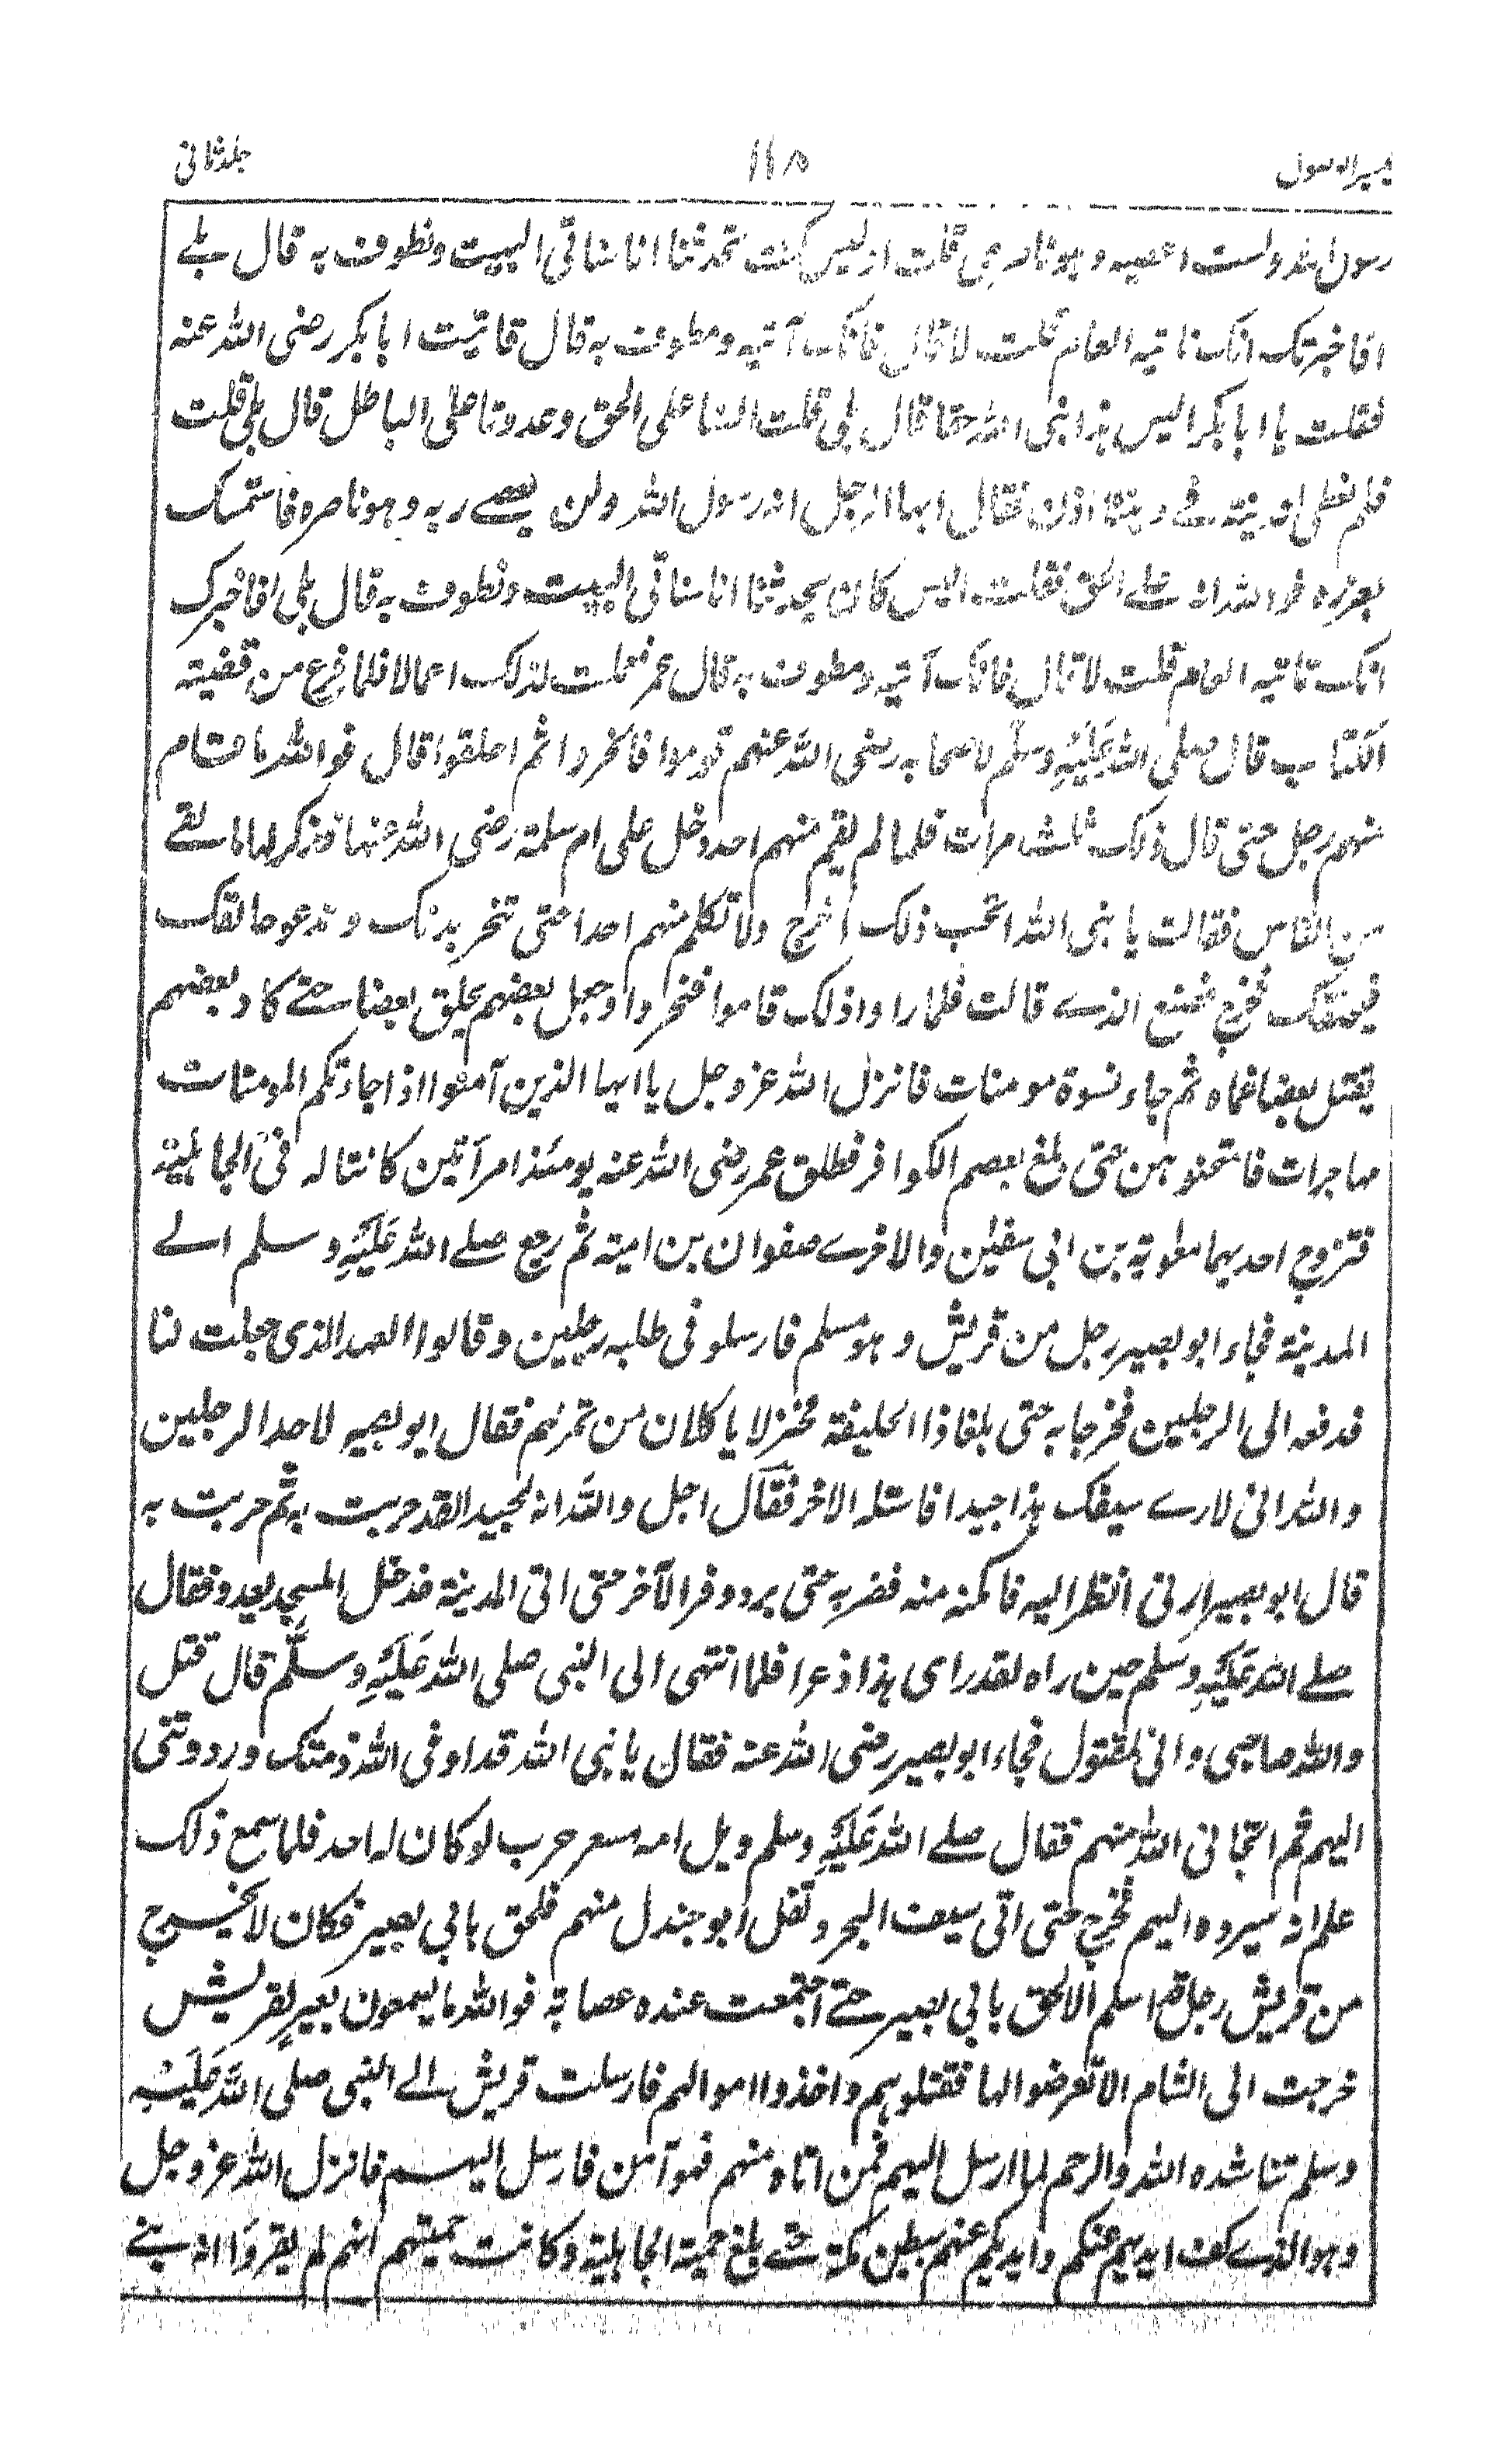 جلد ثانی ١١٨ الرسول
رسول الله ولست اعصیه وہو ناصری قلت اولیس کنت تحدثنا انا سناتی البیت ونطوف به قال بلے
افاخبرتک انک تاتیه العام قلت لا قال فانک آتیه ومطوف به قال فاتیت ابا بکر رضی الله عنه
فقلت یا ابا بکر الیس ہذا نبی الله حقا قال بلی قلت السنا علی الحق وعدونا علی الباطل قال بلی قلت
فلم نعطی الدنیة فے دیننا اذن فقال ایها الرجل انه رسول الله ولن یعصے ربه وہو ناصره فاستمسک
بغرزه فوالله انه علے الحق فقلت الیس کان یحدثنا انا سناتی البیت ونطوف به قال بلی افاخبرک
انک تاتیه العام قلت لا قال فانک آتیه ومطوف به قال عمر فعملت لذلک اعمالا فلما فرغ من قضیته
الکتاب قال صلی الله عَلَیْهِ وسلم لاصحابه رضی الله عنهم قوموا فانحروا ثم احلقوا قال فوالله ما قام
منهم رجل حتی قال ذلک ثلث مرات فلما لم یقم منهم احد دخل علی ام سلمة رضی الله عنها فذکر لها ما لقے
من الناس فقالت یا نبی الله اتحب ذلک اخرج ولا تکلم منهم احدا حتی تنحر بدنک وتدعو حالقک
فیحلقک فخرج فصنع الذے قالت فلما راوا ذلک قاموا فنحروا وجعل بعضهم یحلق بعضا حتے کاد بعضهم
یقتل بعضا غما ه ثم جاء نسوة مومنات فانزل الله عز وجل یا ایها الذین آمنوا اذا جاءتکم المومنات
مهاجرات فامتحنوہن حتی بلغ بعصم الکوافر فطلق عمر رضی الله عنه یومئذ امرآتین کانتا له فی الجاہلیة
فتزوج احدیهما معویة بن ابی سفین والاخرے صفوان بن امیة ثم رجع صلے الله عَلَیْهِ وسلم الے
المدینة فجاء ابو بصیر رجل من قریش وہو مسلم فارسلو فی طلبه رجلین وقالوا العهد الذی جعلت لنا
فدفعه الی الرجلین فخرجا به حتی بلغا ذا الحلیفة فنزلا یاکلان من تمر لهم فقال ابو بصیر لاحد الرجلین
والله انی لارے سیفک ہذا جیدا فاستله الاخر فقال اجل والله انه لجید لقد جربت به ثم جربت به
قال ابو بصیر ارنی انظر الیه فامکنه منه فضربه حتی برد وفر الآخر حتی اتی المدینة فدخل المسجد یعدو فقال
صلے الله عَلَیْهِ وسلم حین راه لقد رای ہذا ذعرا فلما انتهی الی النبی صلی الله عَلَیْهِ وسلَّم قال قتل
والله صاحبی وانی لمقتول فجاء ابو بصیر رضی الله عنه فقال یا نبی الله قد اوفی الله ذمتک ورددتنی
الیهم ثم انجانی الله منهم فقال صلے الله عَلَیْهِ وسلم ویل امه مسعر حرب لو کان له احد فلما سمع ذلک
علم انه سیرده الیهم فخرج حتی اتی سیف البحر وتفل ابو جندل منهم فلحق بابی بصیر فکان لا یخرج
من قریش رجل قد اسلم الا لحق بابی بصیر حتے اجتمعت عنده عصابة فوالله ما یسمعون بعیر لقریش
خرجت الی الشام الا تعرضوا لها فقتلوہم واخذوا اموالهم فارسلت قریش الے النبی صلی الله عَلَیْهِ
وسلم تناشده الله والرحم لما ارسل الیهم فمن اتاه منهم فهو آمن فارسل الیهم فانزل الله عز وجل
وہو الذے کف ایدیهم عنکم وایدیکم عنهم ببطن مکة حتے بلغ حمیة الجاہلیة وکانت حمیتهم انهم لم یقروا انه نبے